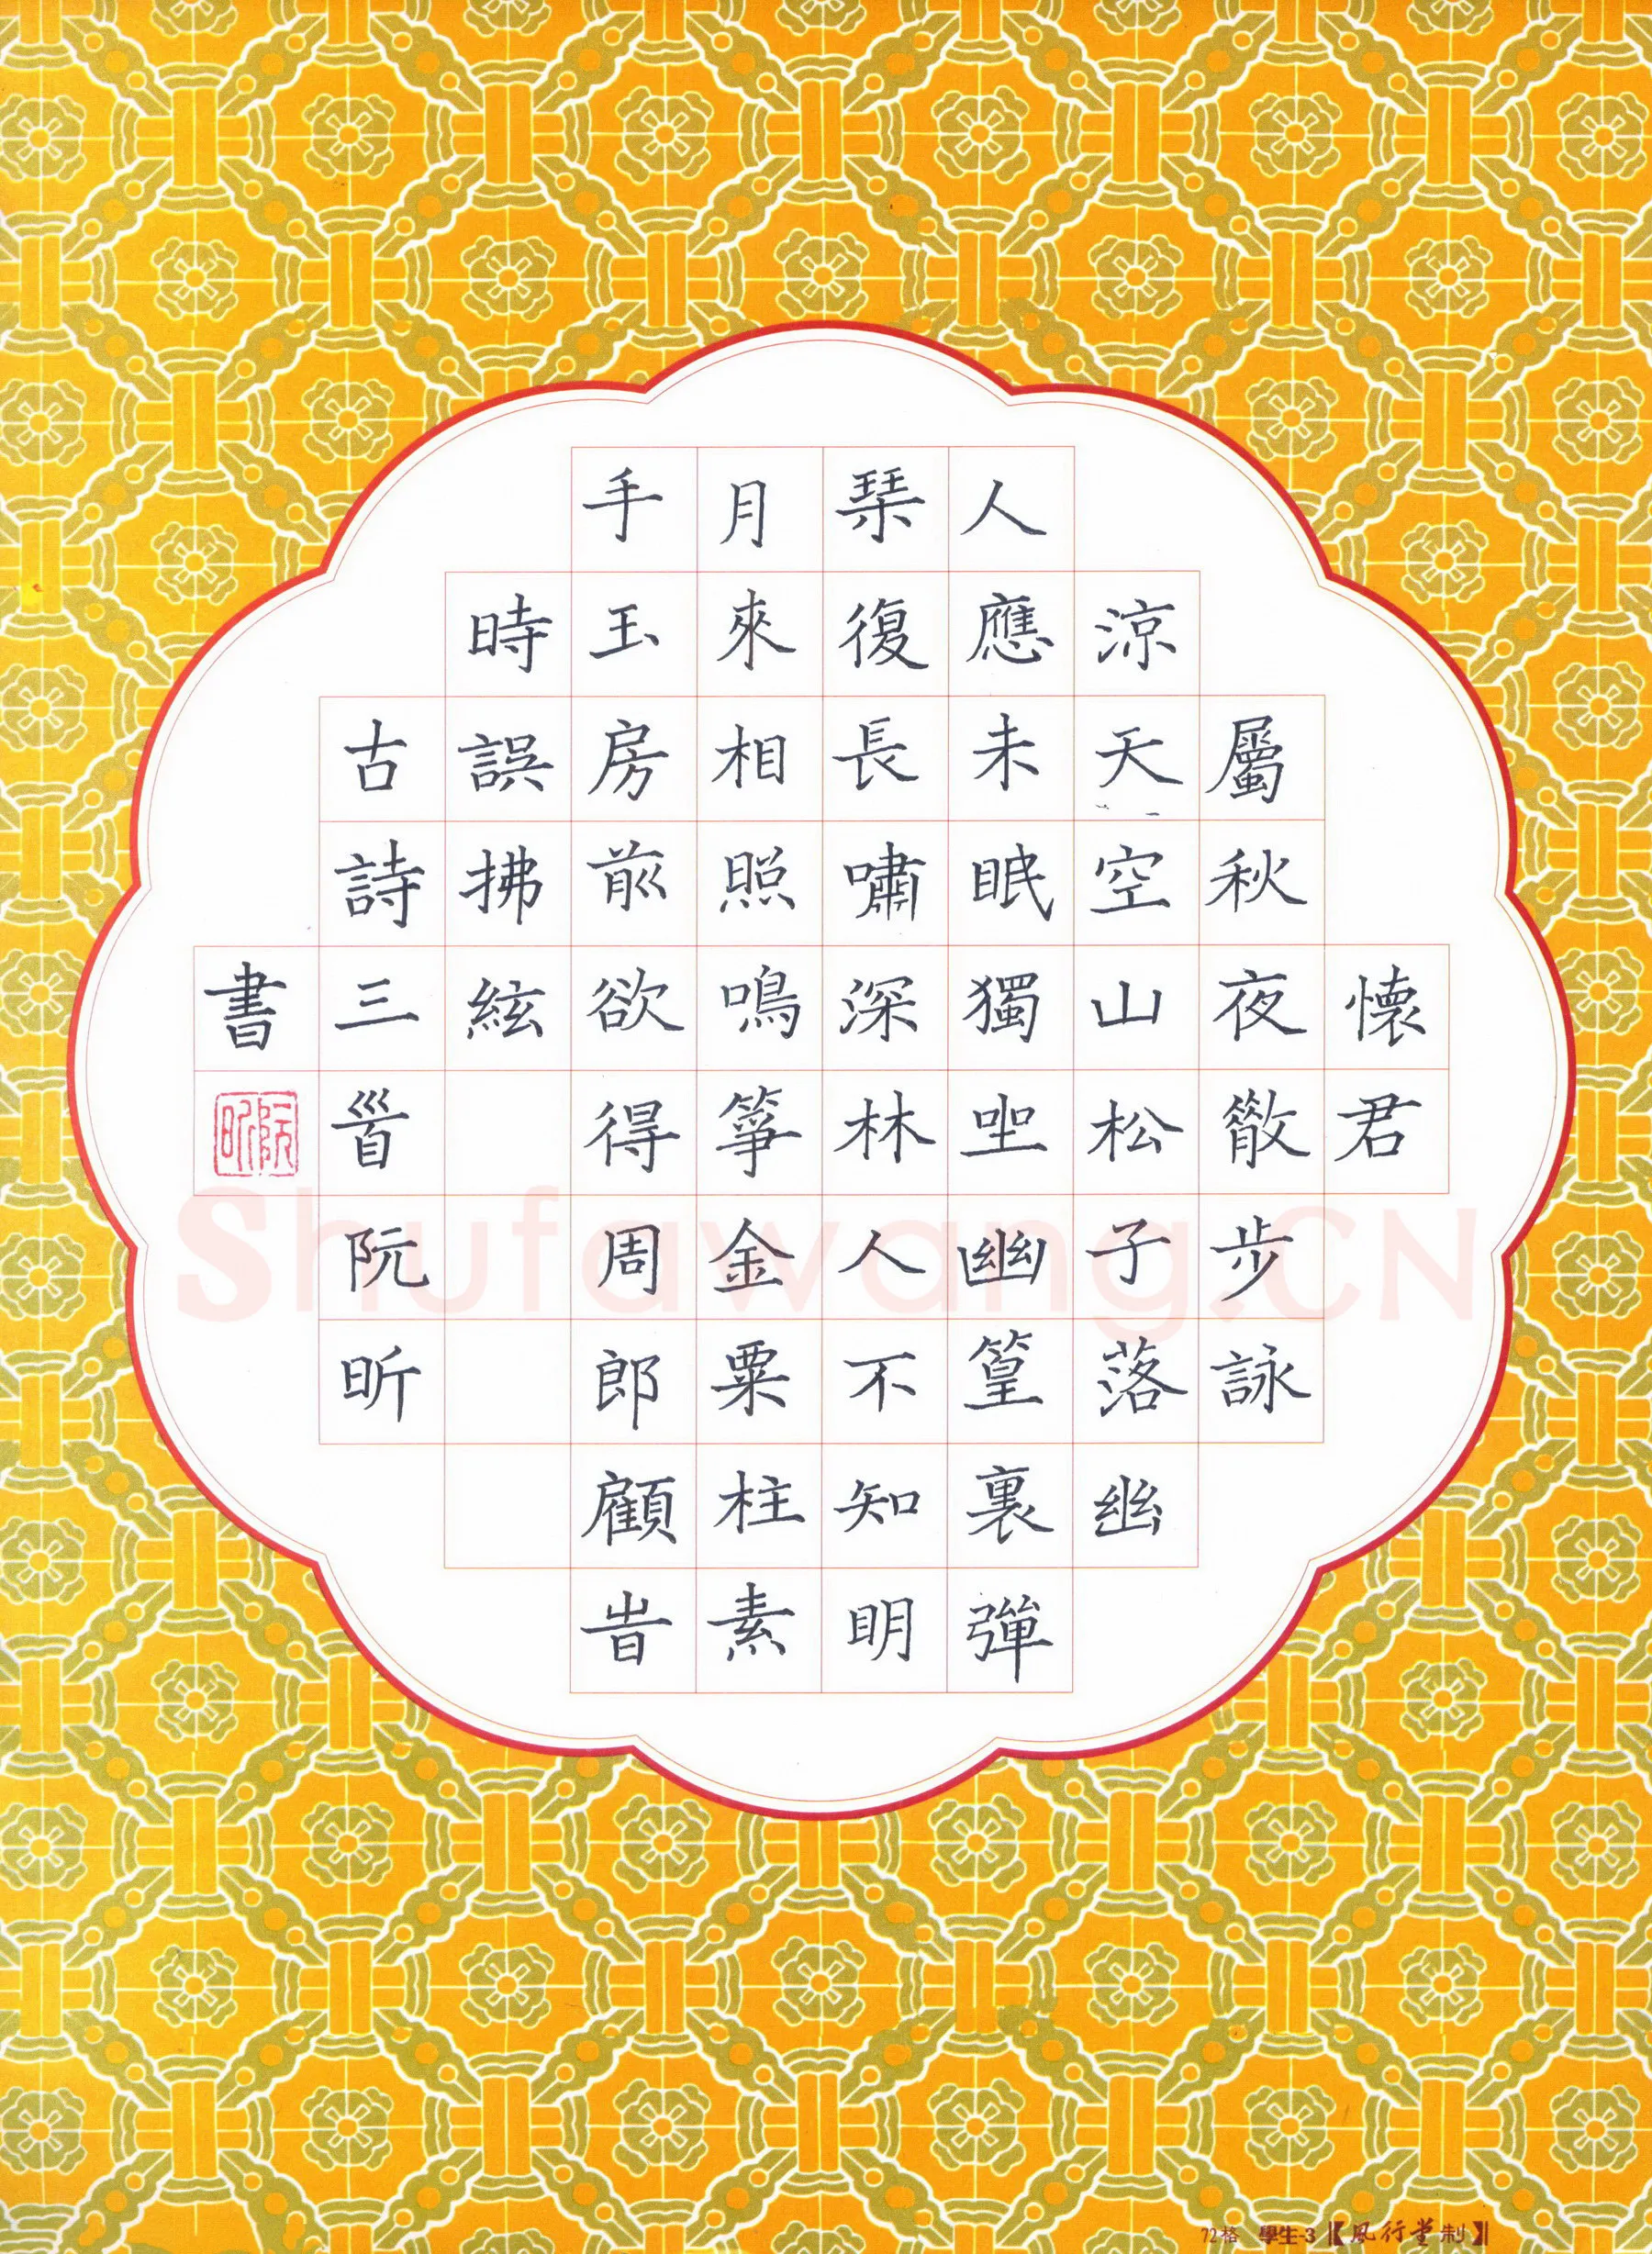 懷君
屬秋夜散步詠
涼天空山松子落幽
人應未眠獨坐幽篁裏彈
琹復長嘯深林人不知明
月來相照鳴箏金粟柱素
手玉房前欲得周郎顧旹
時誤拂絃
古詩三首阮昕
書
阮昕
Shufawang.CN
72格 學生-3【風行堂制】